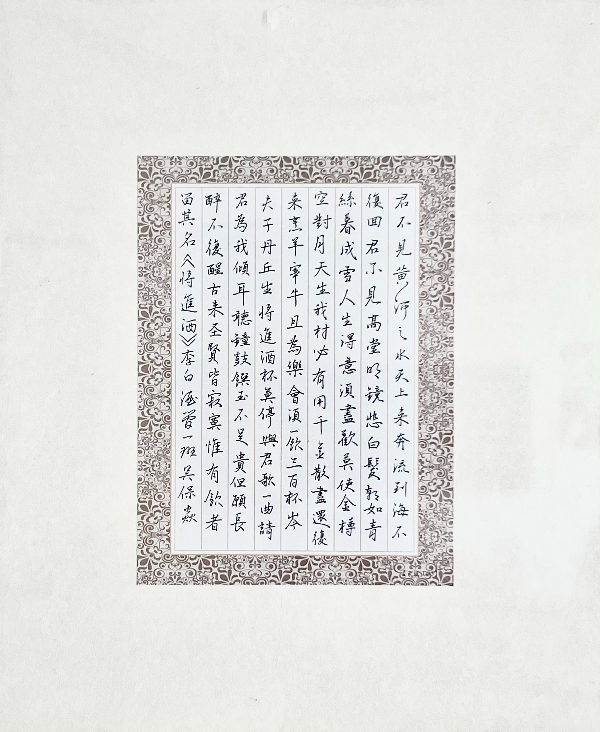 君不見黄河之水天上来奔流到海不
復回君不見高堂明镜悲白髮朝如青
絲暮成雪人生得意須盡歡莫使金樽
空對月天生我材必有用千金散盡還復
来烹羊宰牛且為樂會須一飲三百杯岑
夫子丹丘生將進酒杯莫停與君歌一曲請
君為我傾耳聽鐘鼓饌玉不足貴但願長
醉不復醒古来圣賢皆寂寞惟有飲者
留其名《將進酒》李白 一班 吴保焱